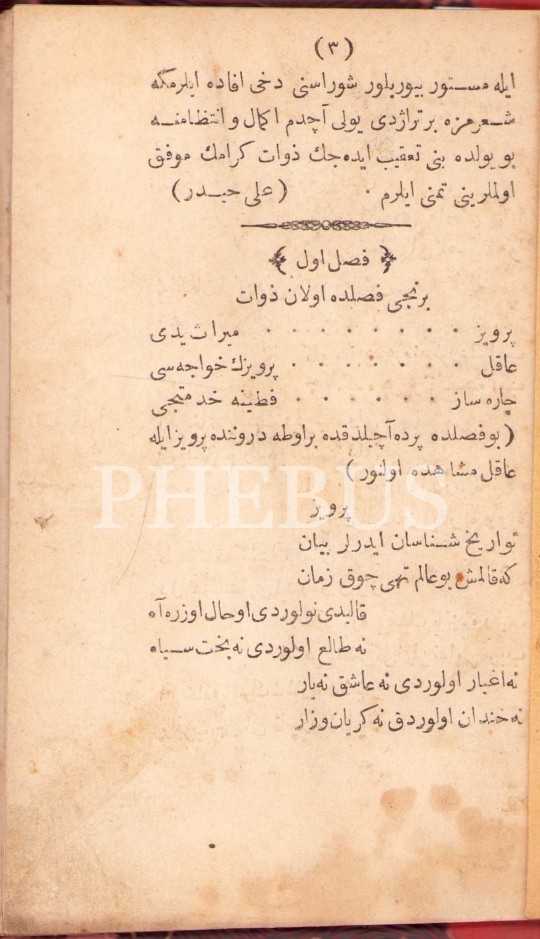 (٣)
ايله مستور بيوريلور شوراسنى دخى افاده ايلرمكه
شعرمزه بر تراژدى يولى آچدم اكمال و انتظامنه
بو يولده بنى تعقيب ايده جك ذوات كرامك موفق
اولملرينى تمنى ايلرم · (على حيدر)
﴿ فصل اول ﴾
برنجى فصلده اولان ذوات
پرويز · · · · · · · · ميراث يدى
عاقل · · · · · · · پرويزك خواجه سى
چاره ساز · · · · · · فطينه خدمتجى
(بو فصلده پرده آچيلدقده بر اوطه دروننده پرويز ايله
عاقل مشاهده اولنور)
PHEBUS
پرويز
تواريخ شناسان ايدرلر بيان
كه قالمش بو عالم تهى چوق زمان
قالیدى نولوردى او حال اوزره آه
نه طالع اولوردى نه بخت سياه
نه اغيار اولوردى نه عاشق نه يار
نه خندان اولوردق نه كريان و زار